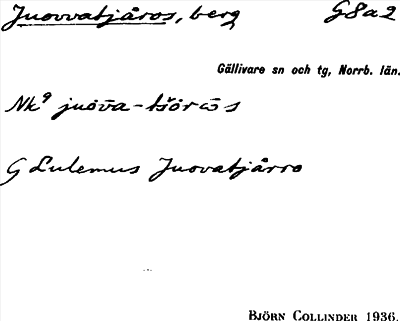 Juovvatjåros, berg G8a2
Gällivare sn och tg, Norrb. län.
Nk⁹ juōva-tšɔ̄rɔ̄s
G Lulemus Juovatjårro
BJÖRN COLLINDER 1936.